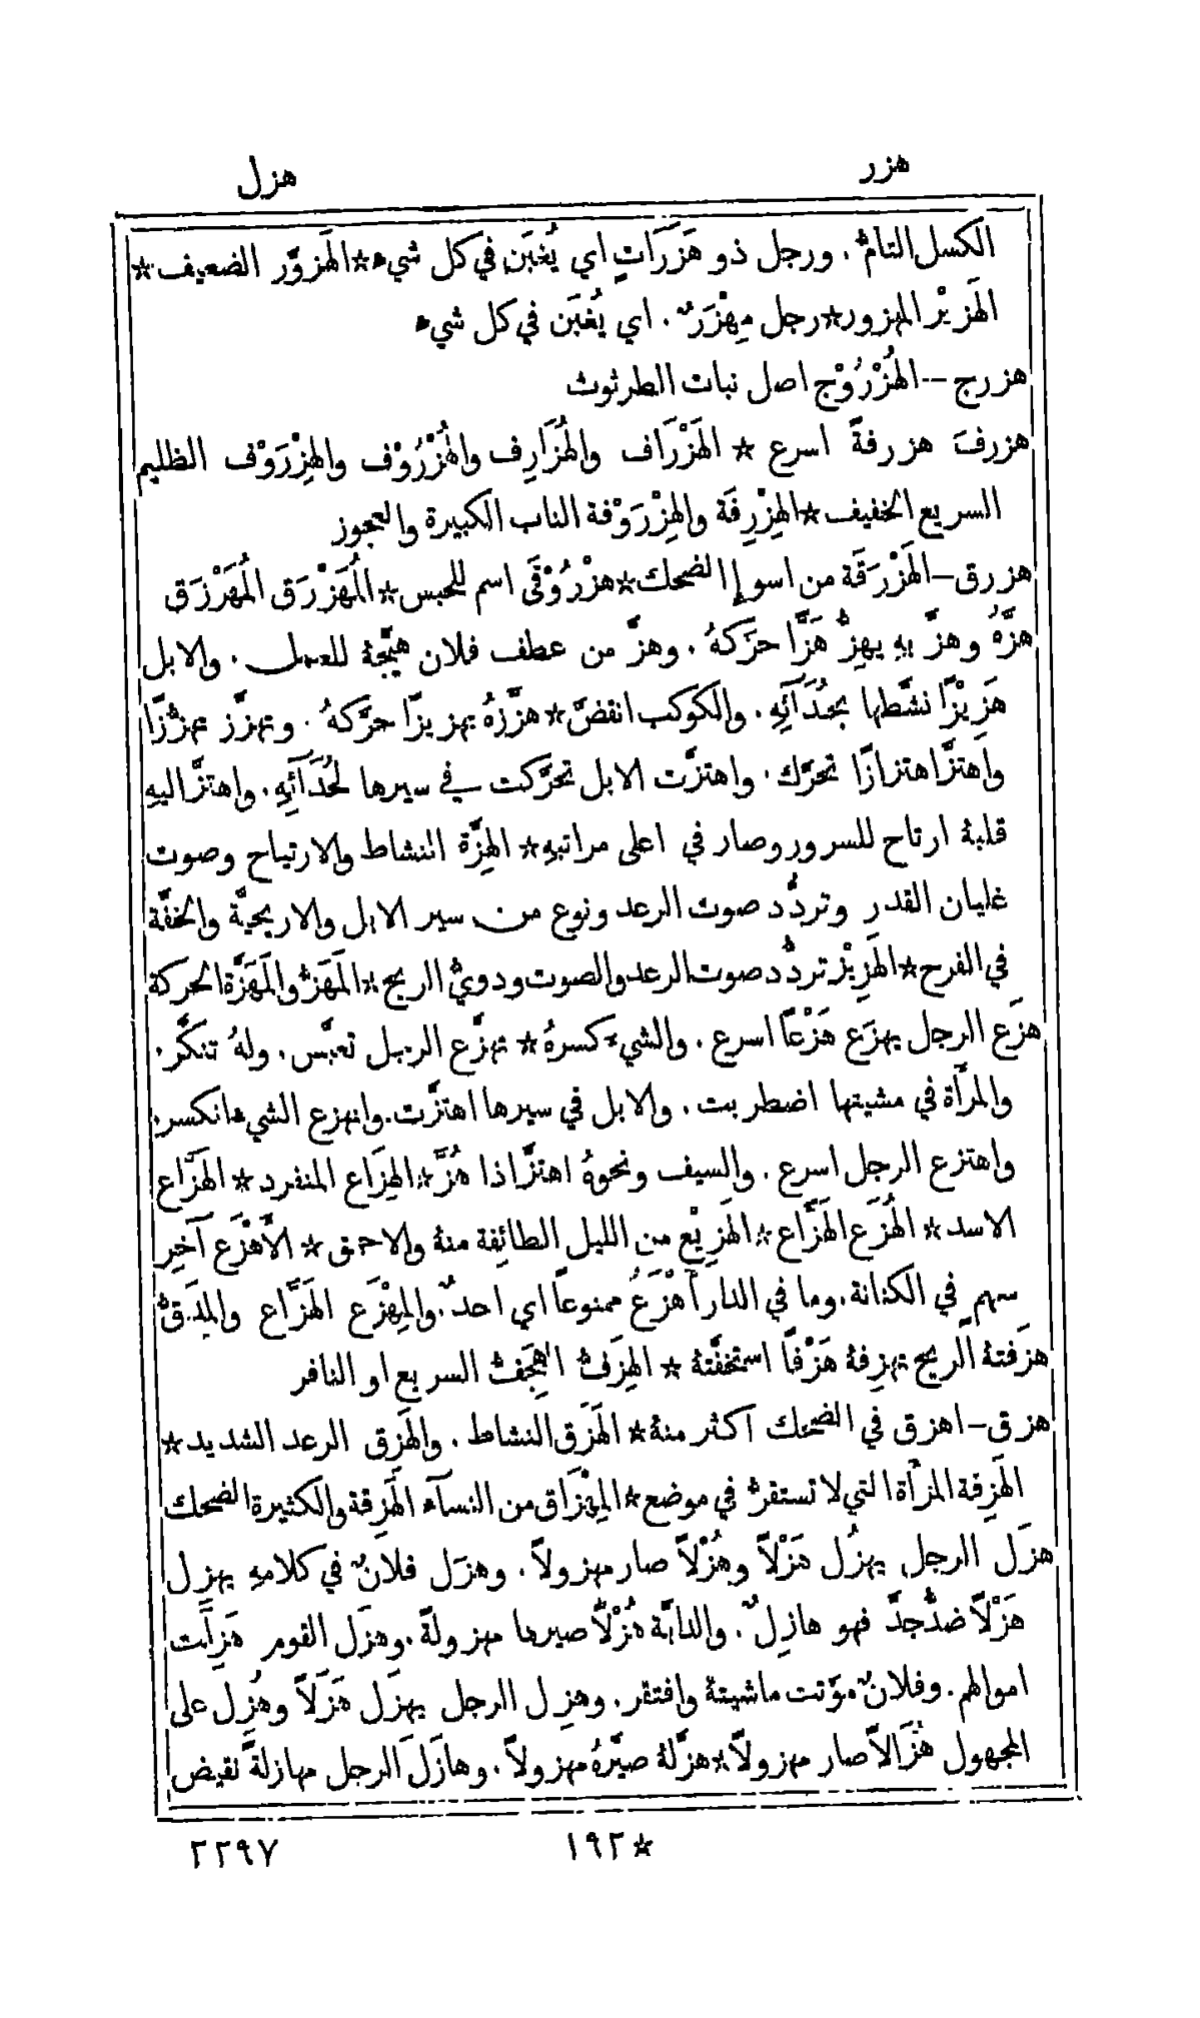 هزر
هزل
الكسل التامّ . ورجل ذو هَزَرَاتٍ اي يُغبَن في كل شيء ☆ الهَزوَّر الضعيف ☆
الهَزِيْر المهزور ☆ رجل مِهْزَرٌ . اي يُغبَن في كل شيء
هزرج — الهُزْرُوْج اصل نبات الطرثوث
هزرفَ هزرفةً اسرع ☆ الهَزْرَاف والهُزَارِف والهُزْرُوْف والهِزْرَوْف الظليم
السريع الخفيف ☆ الهِزْرِفَة والهِزْرَوْفة الناب الكبيرة والعجوز
هزرق — الهَزْرَقَة من اسوإ الضحك ☆ هزْرُوْقَى اسم للحبس ☆ المُهَزْرَق المُهَرْزَق
هزَّهُ وهزَّ بهِ يهزّ هَزًّا حرَّكهُ . وهزَّ من عطف فلان هيَّجهُ للعمل . والابل
هَزِيْزًا نشَّطها بحُدَآئِهِ . والكوكب انقضَّ ☆ هزَّزهُ تهزيزًا حرَّكهُ . وتهزَّز تهزُّزًا
واهتزَّ اهتزازًا تحرَّك . واهتزَّت الابل تحرَّكت في سيرها لحُدَآئِهِ . واهتزَّ اليهِ
قلبهُ ارتاح للسرور وصار في اعلى مراتبهِ ☆ الهِزَّة النشاط والارتياح وصوت
غليان القدر وتردُّد صوت الرعد ونوع من سير الابل والاريحيَّة والخفَّة
في الفرح ☆ الهَزِيْز تردُّد صوت الرعد والصوت ودويّ الريح ☆ المَهَزّ والمَهَزَّة الحركة
هزَع الرجل يهزَع هَزْعًا اسرع . والشيءَ كسرهُ ☆ تهزَّع الرجل تعبَّس . ولهُ تنكَّر .
والمرأة في مشيتها اضطربت . والابل في سيرها اهتزَّت . وانهزع الشيء انكسر .
واهتزع الرجل اسرع . والسيف ونحوهُ اهتزَّ اذا هُزَّ ☆ الهِزَاع المنفرد ☆ الهَزَّاع
الاسد ☆ الهُزَع الهَزَّاع ☆ الهَزِيْع من الليل الطائِفة منهُ والاحمق ☆ الأَهْزَع آخِر
سهمٍ في الكنانة . وما في الدار أَهْزَعُ ممنوعًا اي احدٌ . والمِهْزَع الهَزَّاع والمِدَقّ
هزَفتهُ الريح تهزِفهُ هَزْفًا استخفَّتهُ ☆ الهِزَفّ الهِجَفّ السريع او النافر
هزق — اهزق في الضحك اكثر منهُ ☆ الهَزَق النشاط . والهَزِق الرعد الشديد ☆
الهَزِقة المرأة التي لا تستقرّ في موضع ☆ المِهْزَاق من النسآء الهَزِقة والكثيرة الضحك
هزَل الرجل يهزُل هَزْلاً وهُزْلاً صار مهزولاً . وهزَل فلانٌ في كلامهِ يهزِل
هَزْلاً ضدُّ جدَّ فهو هازِلٌ . والدابَّة هُزْلاً صيرها مهزولةً . وهزَل القوم هَزِلَت
اموالهم . وفلانٌ موَّتت ماشيتهُ وافتقر . وهزِل الرجل يهزَل هَزَلاً وهُزِل على
المجهول هُزَالاً صار مهزولاً ☆ هزَّلهُ صيَّرهُ مهزولاً . وهازَلَ الرجل مهازلةً نقيض
☆ ١٩٢
٢٢٩٧